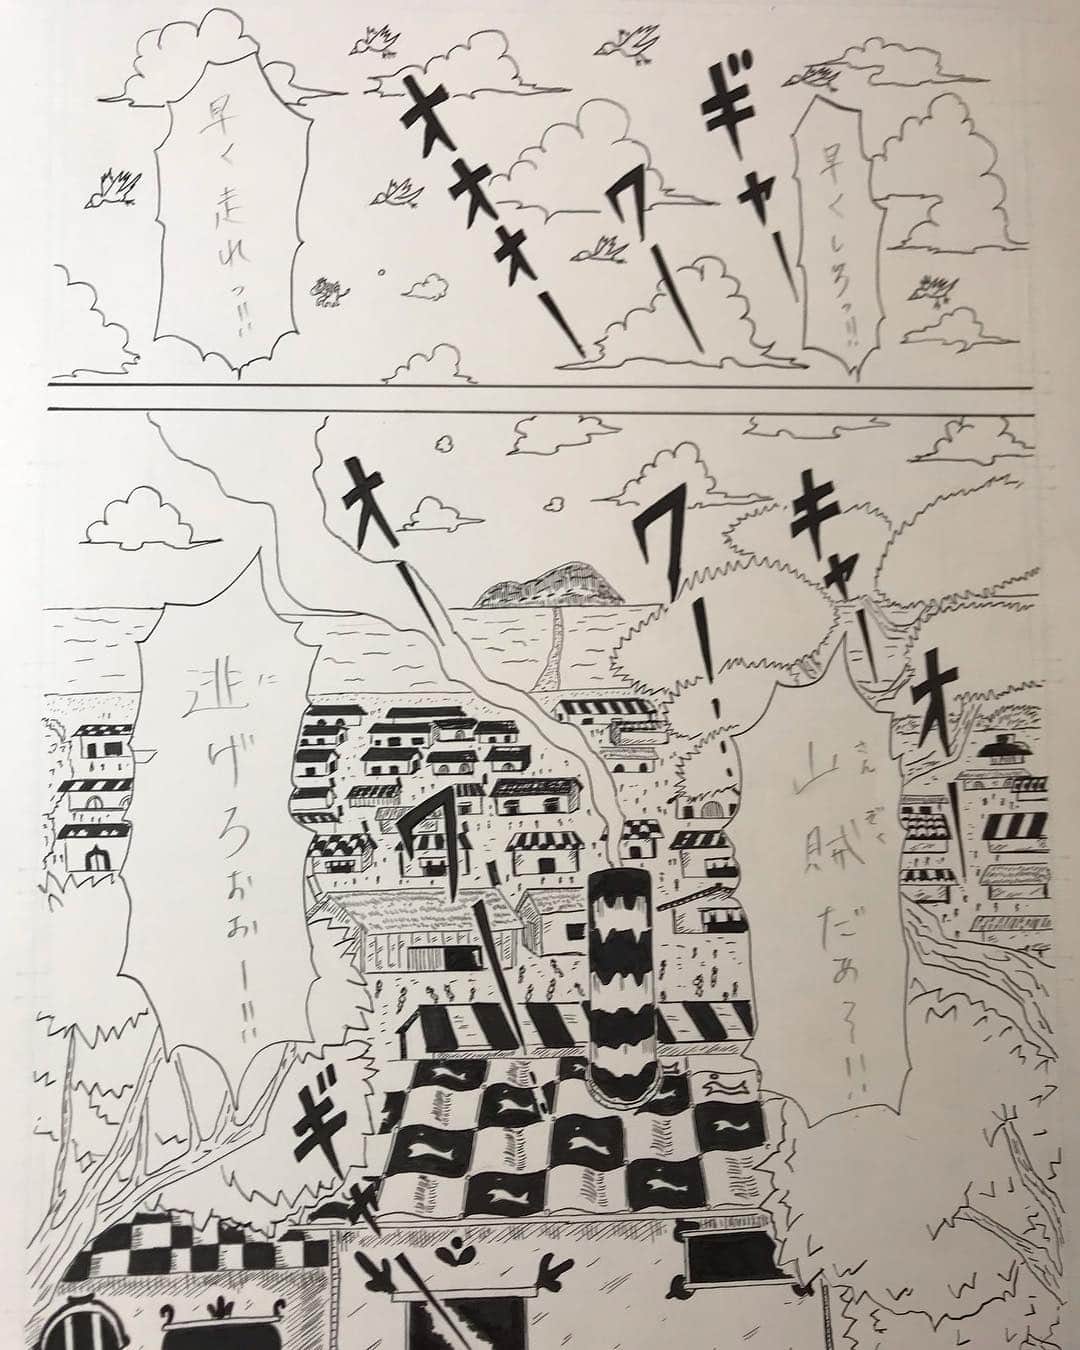 早くしろっ!!
ギャー
ワー
オオオー
早く走れっ!!
山賊だぁ〜!!
さんぞく
オー
ギャー
ワー
オー
逃げろぉぉー!!!
に
ワー
ギャー